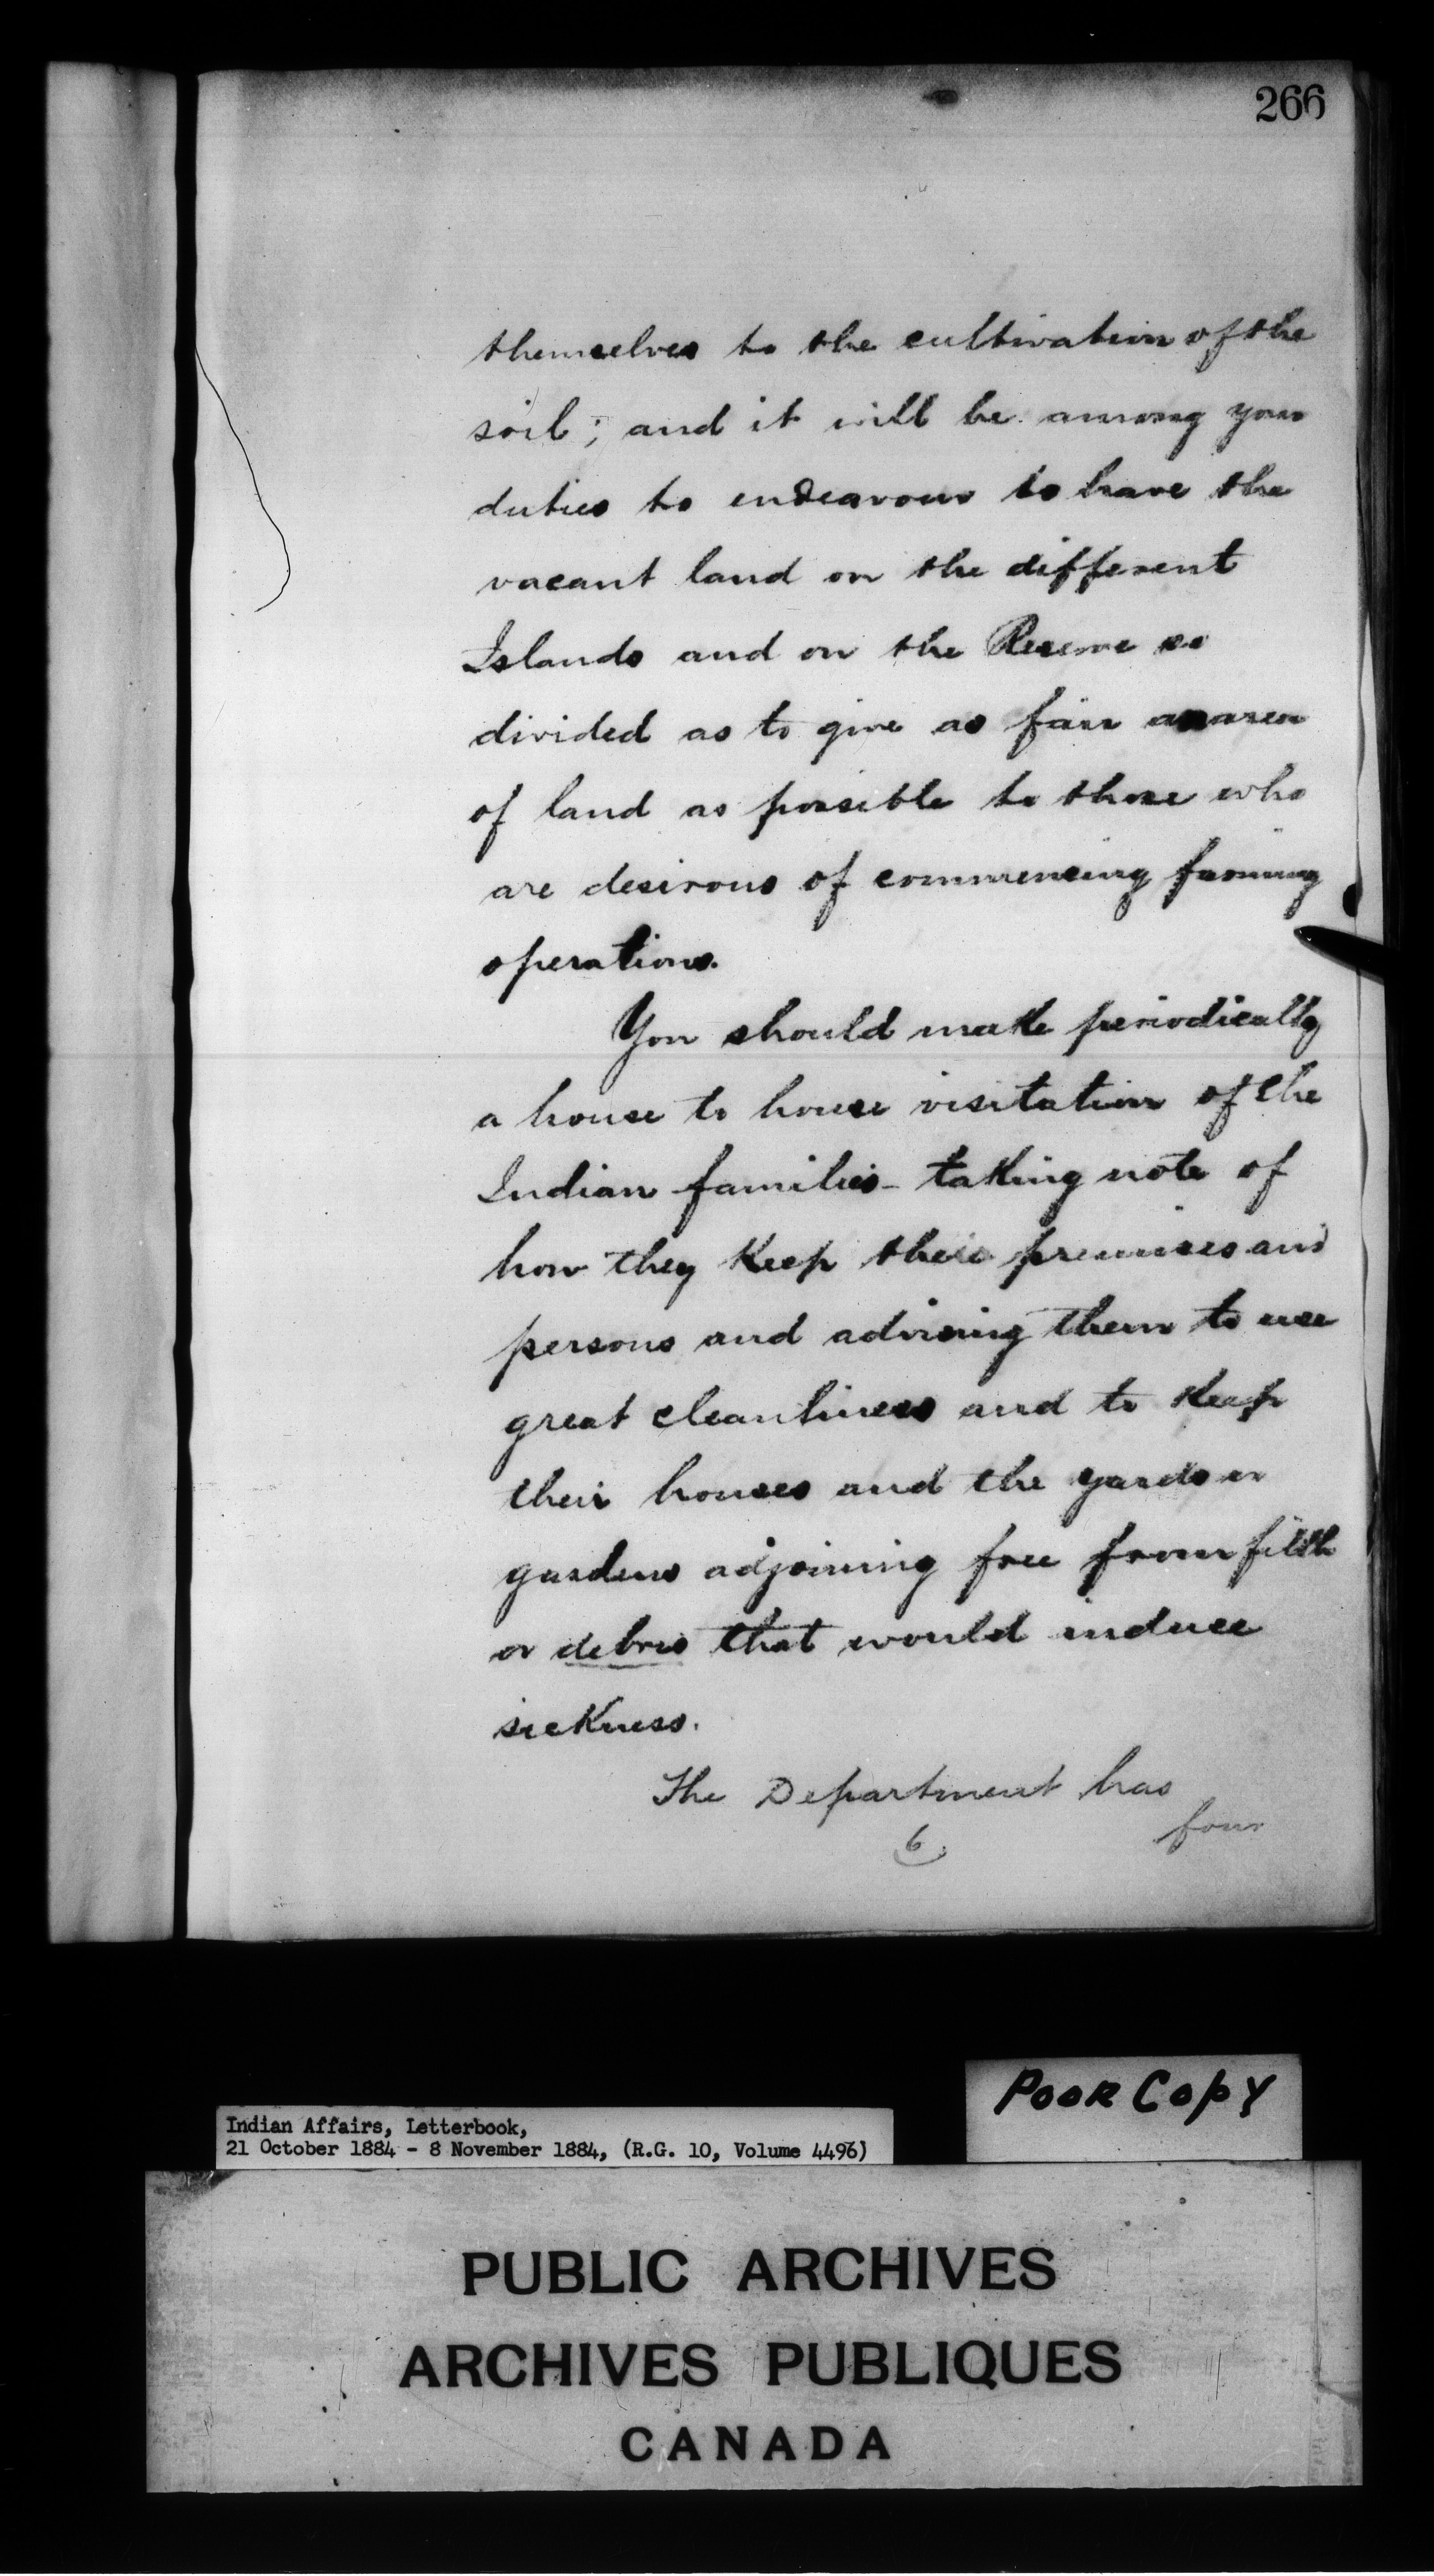 266
themselves to the cultivation of the
soil; and it will be among your
duties to endeavour to have the
vacant land on the different
Islands and on the Reserve so
divided as to give as fair an area
of land as possible to those who
are desirous of commencing farming
operations.
You should make periodically
a house to house visitation of the
Indian families - taking note of
how they keep their premises and
persons and advising them to use
great cleanliness and to keep
their houses and the yards or
gardens adjoining free from filth
or debris that would induce
sickness.
The Department has
6.
four
Poor Copy
Indian Affairs, Letterbook,
21 October 1884 - 8 November 1884, (R.G. 10, Volume 4496)
PUBLIC ARCHIVES
ARCHIVES PUBLIQUES
CANADA